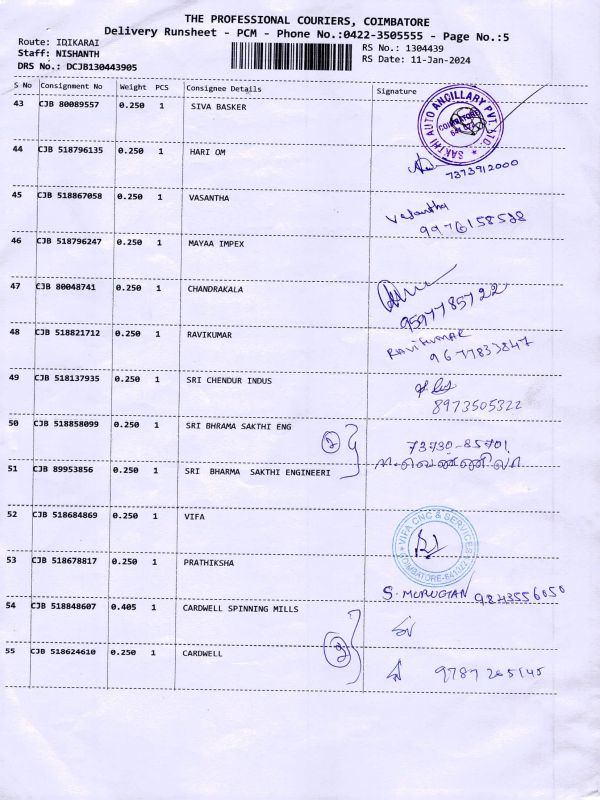 THE PROFESSIONAL COURIERS, COIMBATORE
Delivery Runsheet - PCM - Phone No.:0422-3505555 - Page No.:5
Route: IDIKARAI
RS No.: 1304439
Staff: NISHANTH
RS Date: 11-Jan-2024
DRS No.: DCJB130443905
S No Consignment No Weight PCS Consignee Details Signature
43 CJB 80089557 0.250 1 SIVA BASKER
SAKTHI AUTO ANCILLARY PVT. LTD.
COIMBATORE
44 CJB 518796135 0.250 1 HARI OM
7373912000
45 CJB 518867058 0.250 1 VASANTHA
Vasantha
9976158538
46 CJB 518796247 0.250 1 MAYAA IMPEX
47 CJB 80048741 0.250 1 CHANDRAKALA
9597785722
48 CJB 518821712 0.250 1 RAVIKUMAR
RAVIKUMAR
9677833847
49 CJB 518137935 0.250 1 SRI CHENDUR INDUS
8973505322
50 CJB 518858099 0.250 1 SRI BHRAMA SAKTHI ENG
2
73730-85701
51 CJB 89953856 0.250 1 SRI BHARMA SAKTHI ENGINEERI
52 CJB 518684869 0.250 1 VIFA
VIFA CNC & SERVICES
COIMBATORE-641022
53 CJB 518678817 0.250 1 PRATHIKSHA
S. MURUGAN 9843556050
54 CJB 518848607 0.405 1 CARDWELL SPINNING MILLS
2
55 CJB 518624610 0.250 1 CARDWELL
9787265145